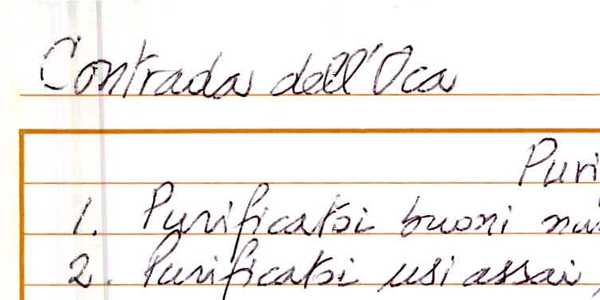 Contrada dell'Oca
Puri
1. Purificatoi buoni
2. Purificatoi usi assai